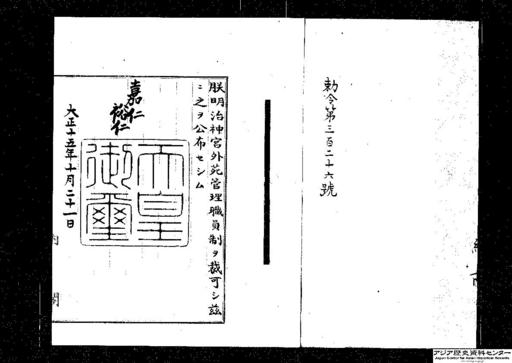 勅令第三百二十六號
朕明治神宮外苑管理職員制ヲ裁可シ茲
ニ之ヲ公布セシム
嘉仁
裕仁
天皇
御璽
大正十五年十月二十一日
内閣
アジア歴史資料センター
Japan Center for Asian Historical Records